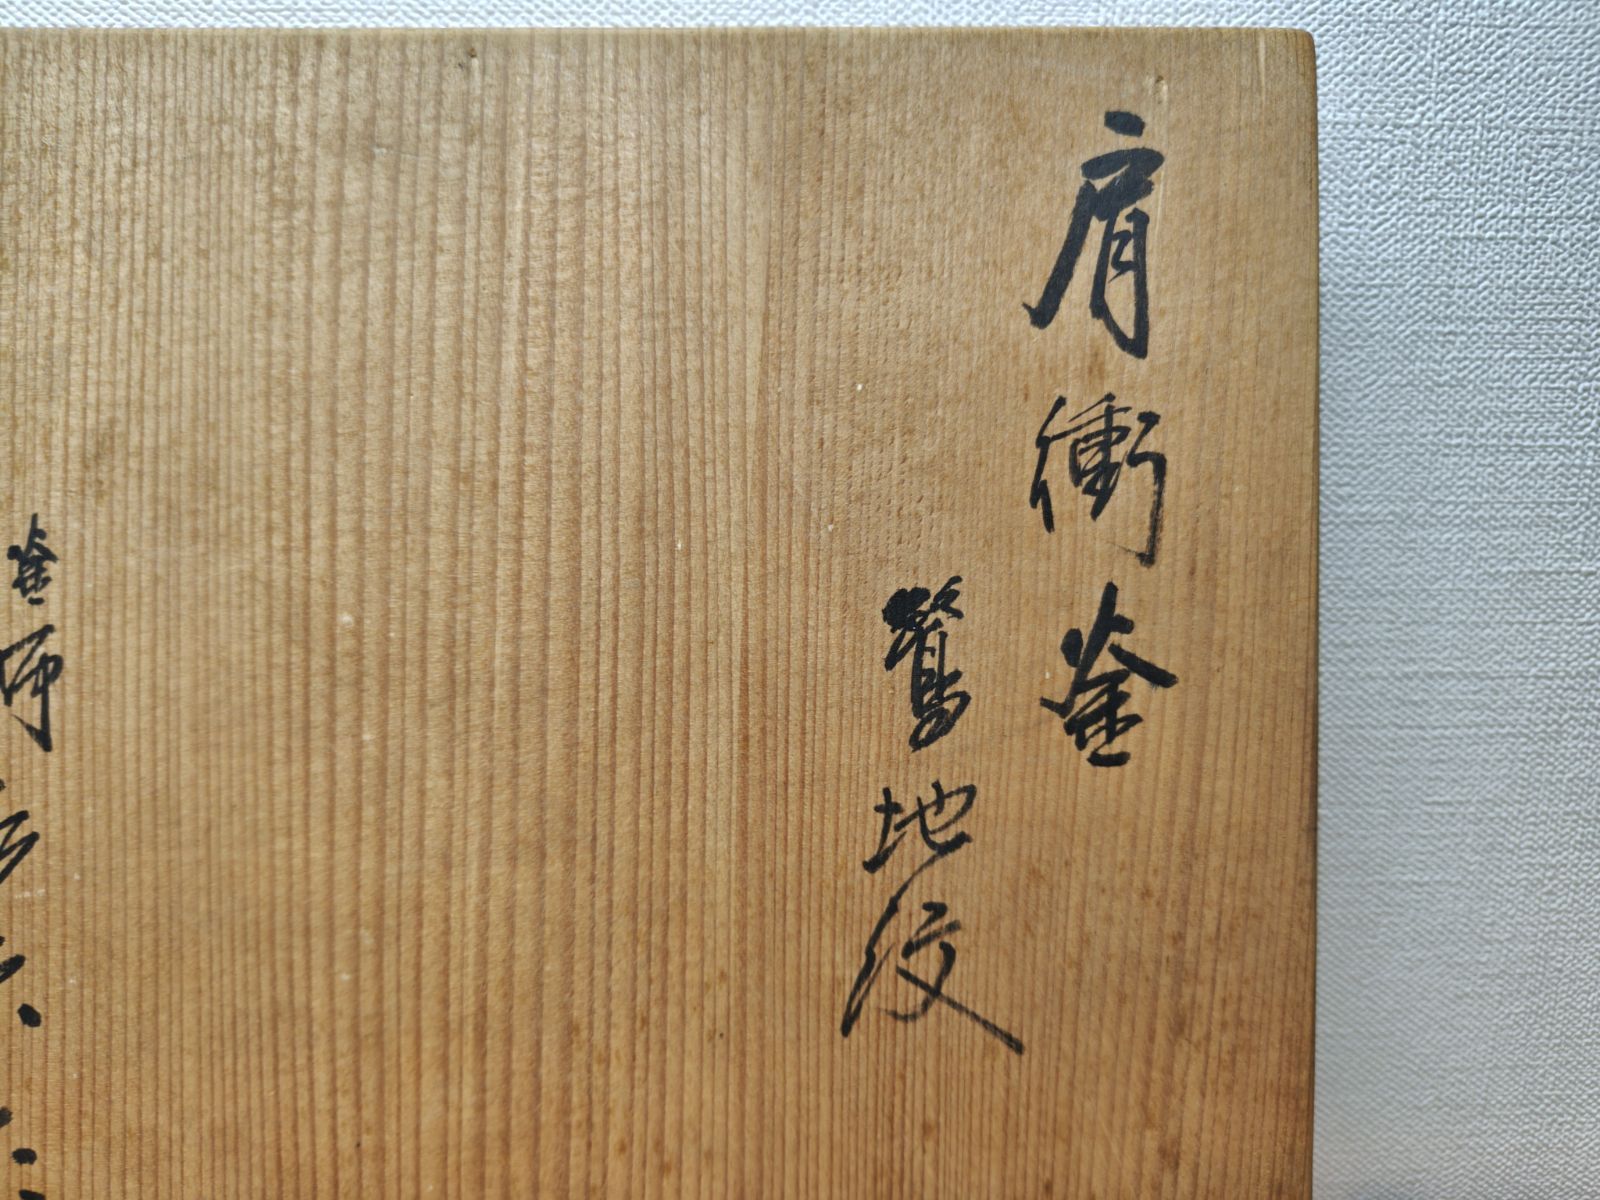 肩衝釜
鷺地紋
釜師